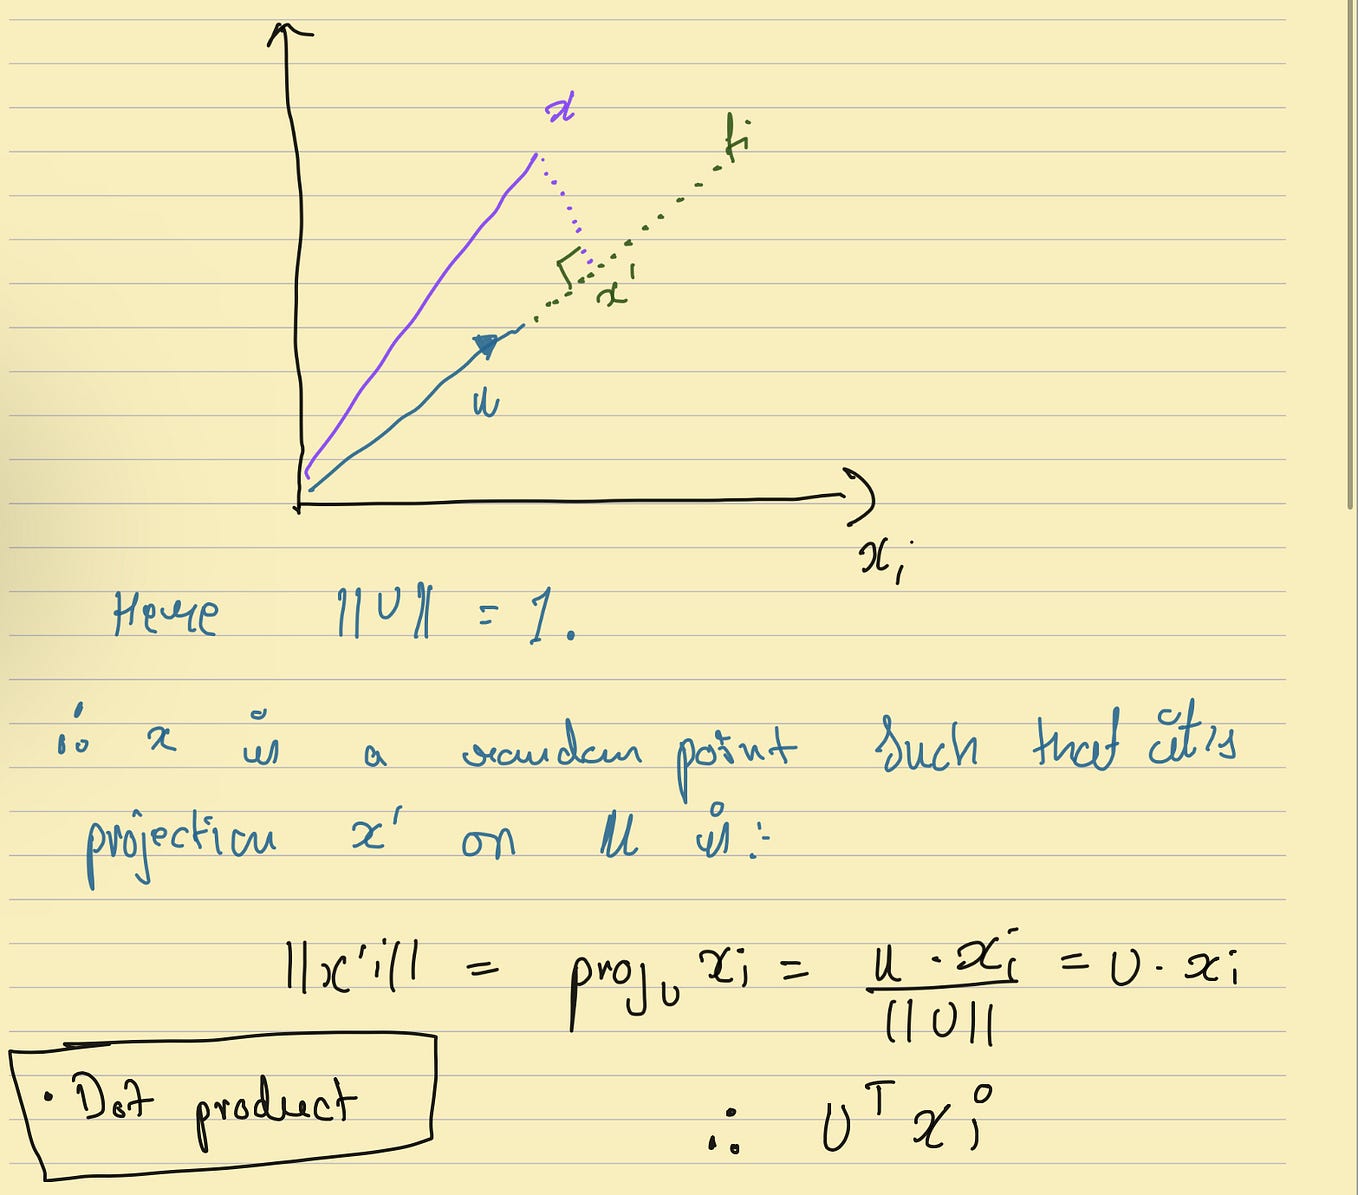 x
fi
x'
u
xi
Here ||U|| = 1.
∴ x is a random point such that it's
projection x' on u is :-
||x'i|| = proj_U xi = u · xi / ||U|| = U · xi
· Dot product
∴ U^T xi